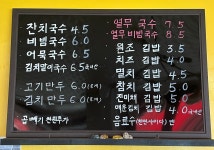 잔치국수 4.5
비빔국수 6.0
어묵국수 6.5
김치말이국수 6.5
고기만두 6.0
김치만두 6.0
곱빼기 천원추가
열무 국수 7.5
열무 비빔국수 8.5
원조 김밥 3.5
치즈 김밥 4.0
멸치 김밥 4.5
참치 김밥 5.0
진미채 김밥 5.0
매운진미 김밥 4.0
음료수